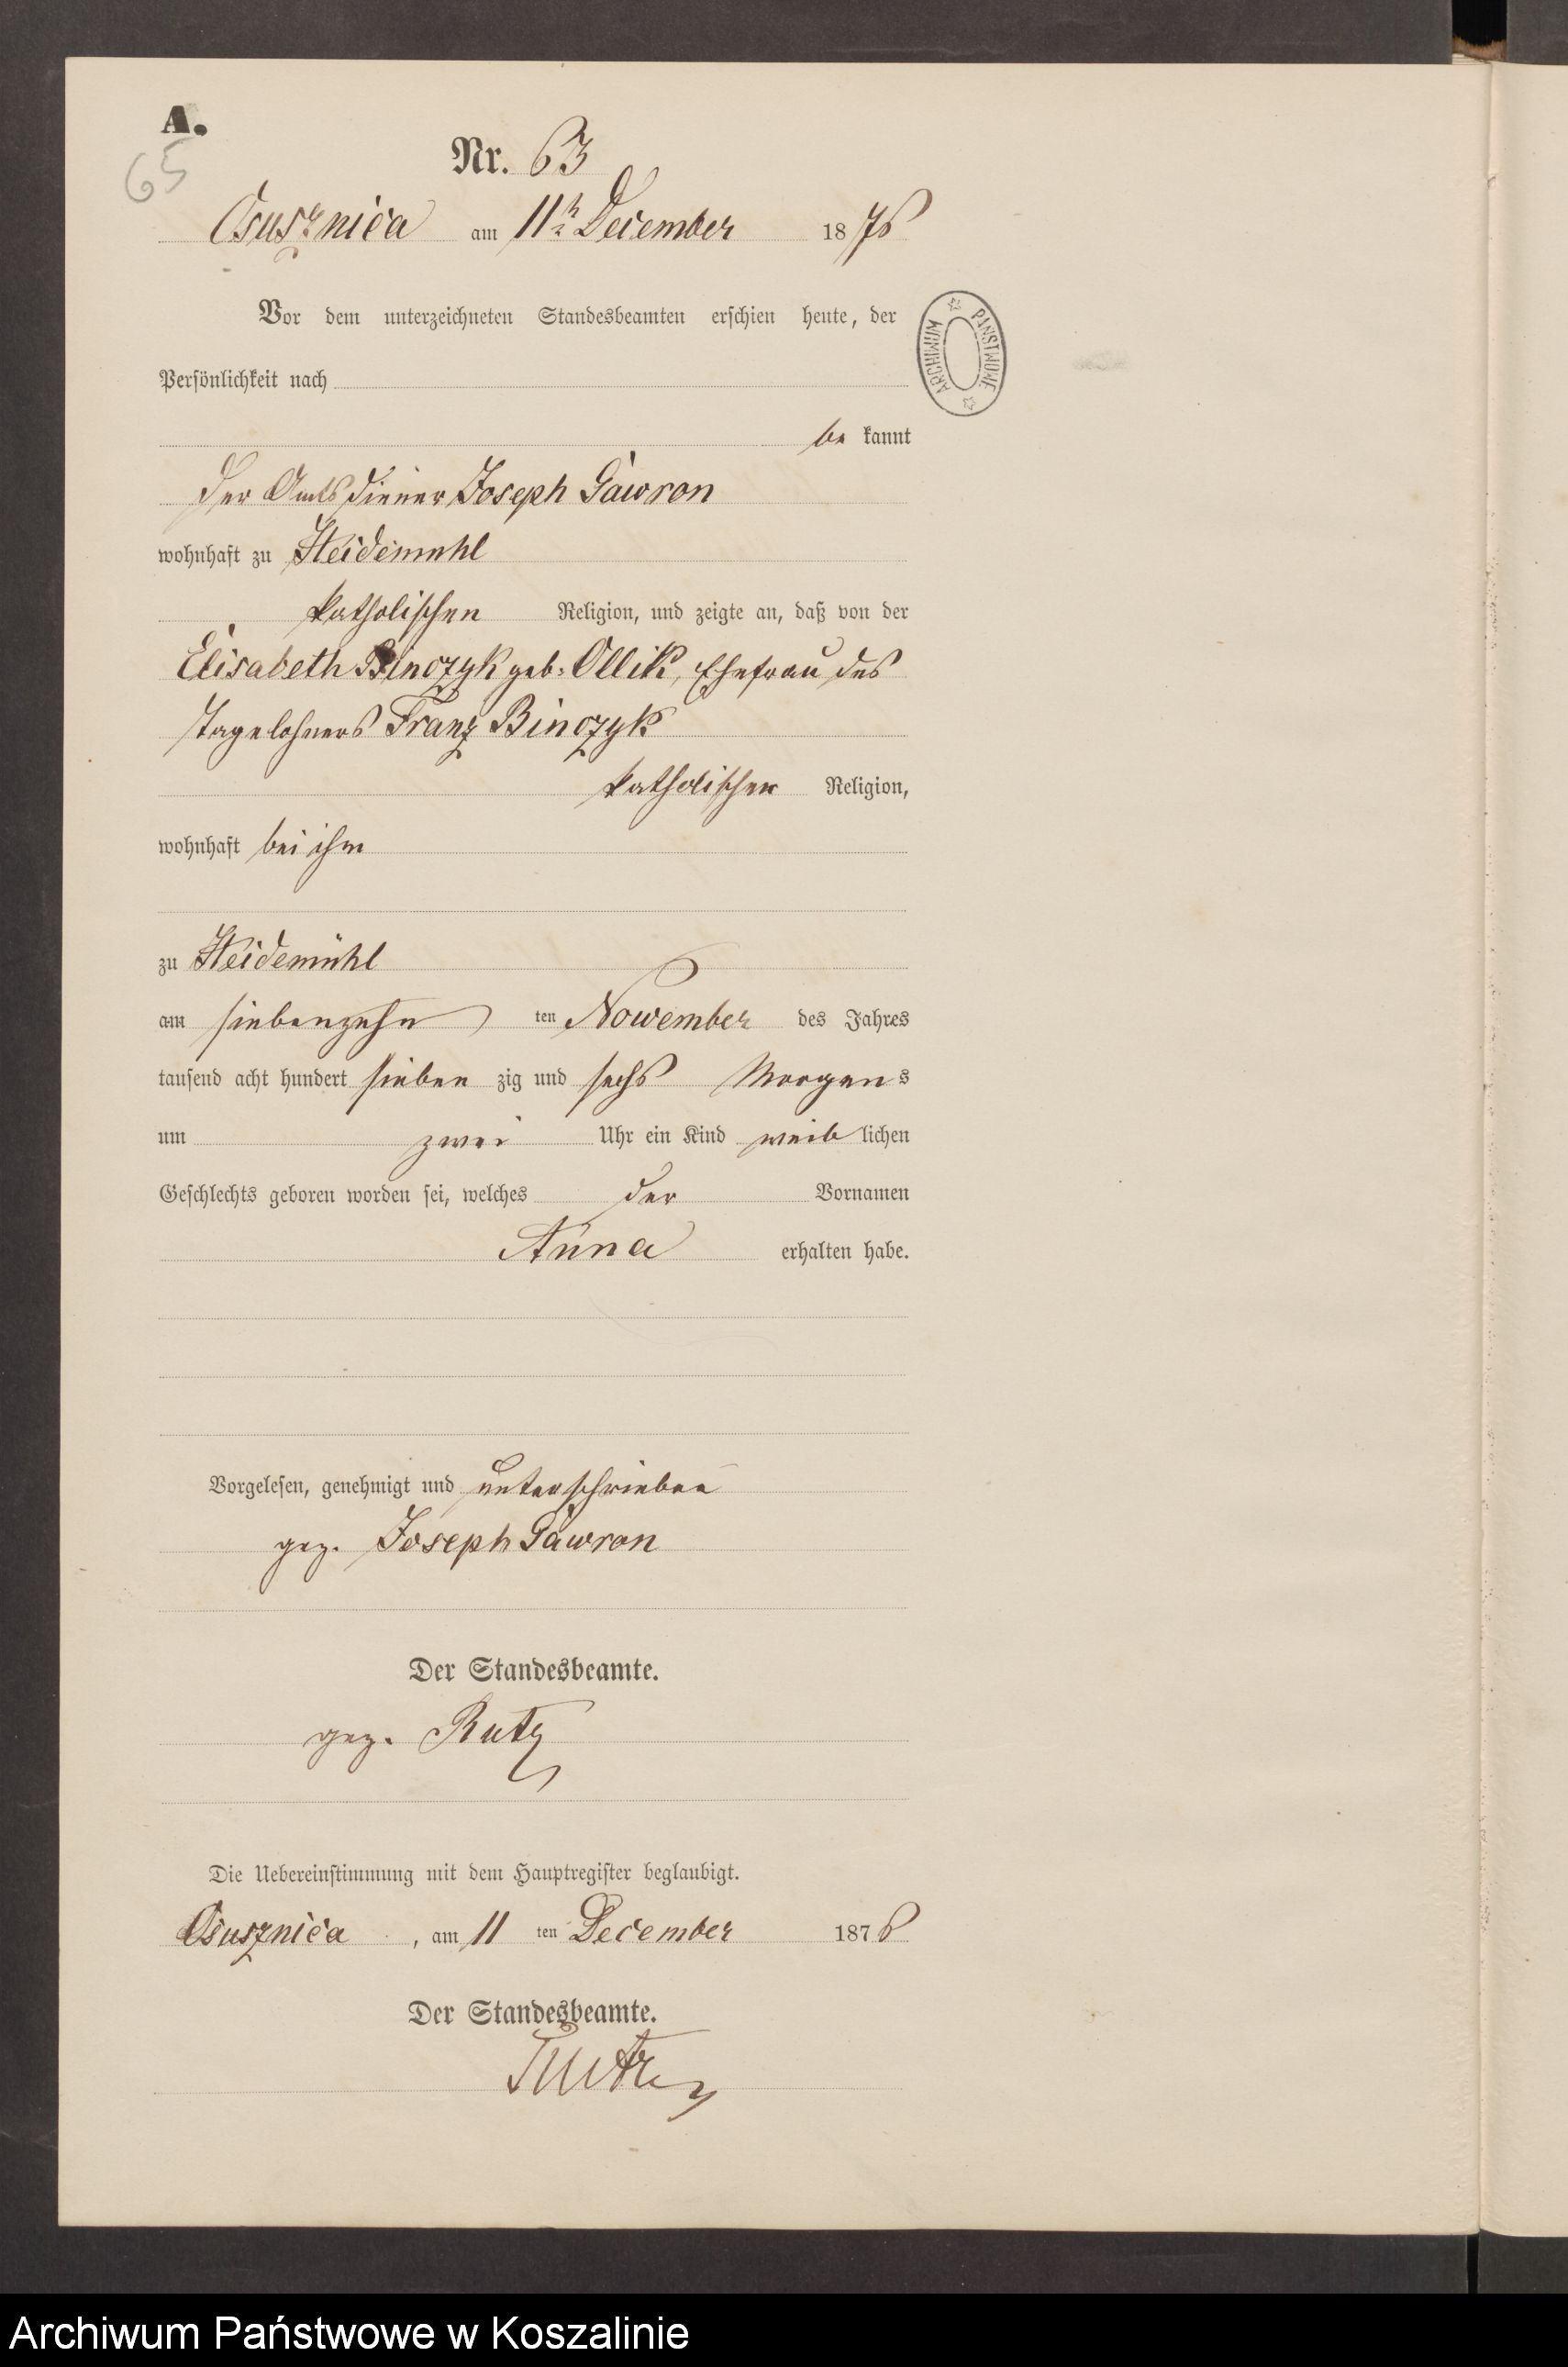 A.
65
Nr. 63
Osusznica am 11ten December 1876
Vor dem unterzeichneten Standesbeamten erschien heute, der
Persönlichkeit nach
be kannt
ARCHIWUM PAŃSTWOWE
der Amtsdiener Joseph Gawron
wohnhaft zu Heidemühl
katholischen Religion, und zeigte an, daß von der
Elisabeth Binczyk geb: Ollik, Ehefrau des
Tagelöhners Franz Binczyk
katholischen Religion,
wohnhaft bei ihm
zu Heidemühl
am siebenzehn ten November des Jahres
tausend acht hundert sieben zig und sechs Morgens
um zwei Uhr ein Kind weib lichen
Geschlechts geboren worden sei, welches der Vornamen
Anna erhalten habe.
Vorgelesen, genehmigt und unterschrieben
gez. Joseph Gawron
Der Standesbeamte.
gez. Rutz
Die Uebereinstimmung mit dem Hauptregister beglaubigt.
Osusznica, am 11 ten December 1876
Der Standesbeamte.
Rutz
Archiwum Państwowe w Koszalinie